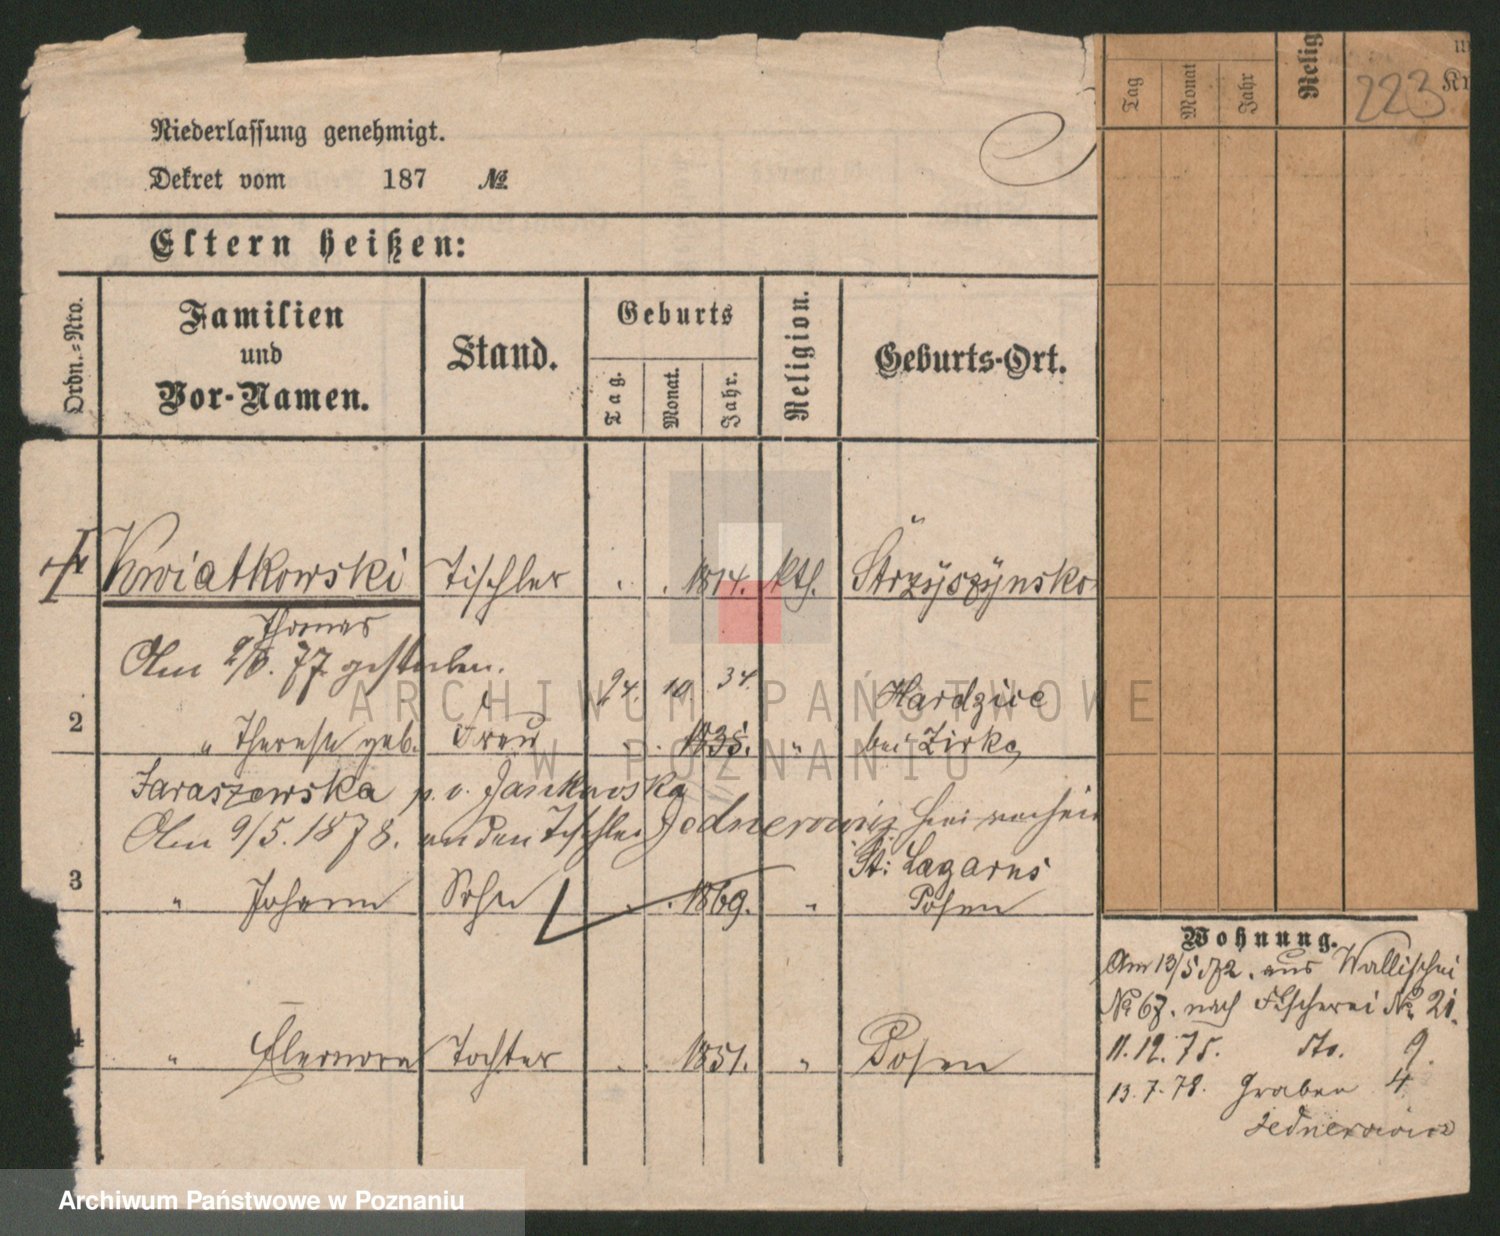 Niederlassung genehmigt.
Dekret vom 187 №
Eltern heißen:
Ordn.-Nro.
Familien und Vor-Namen.
Stand.
Geburts
Tag.
Monat.
Jahr.
Religion.
Geburts-Ort.
Tag
Monat
Jahr
Relig
223
Kr
Kwiatkowski Tischler . . 1814. kth. Strzyszynsko
Thomas
Am 2/6. 77 gestorben.
24. 10. 34. Hardzice
2 " Therese geb. Frau . . 1835. " bei Zirke
Jaraszewska p. v. Jankowska
Am 9/5. 1878. an den Tischler Jednerowicz
St: Lazarus
3 " Johann Sohn . . 1869. " Posen
4 " Eleonora Tochter . . 1851. " Posen
Wohnung.
Am 13/5 72. aus Wallischei
№ 67. nach Fischerei № 21.
11.12.75. dto. 9.
13.7.78. Graben 4
Jednerowicz
ARCHIWUM PAŃSTWOWE
W POZNANIU
Archiwum Państwowe w Poznaniu